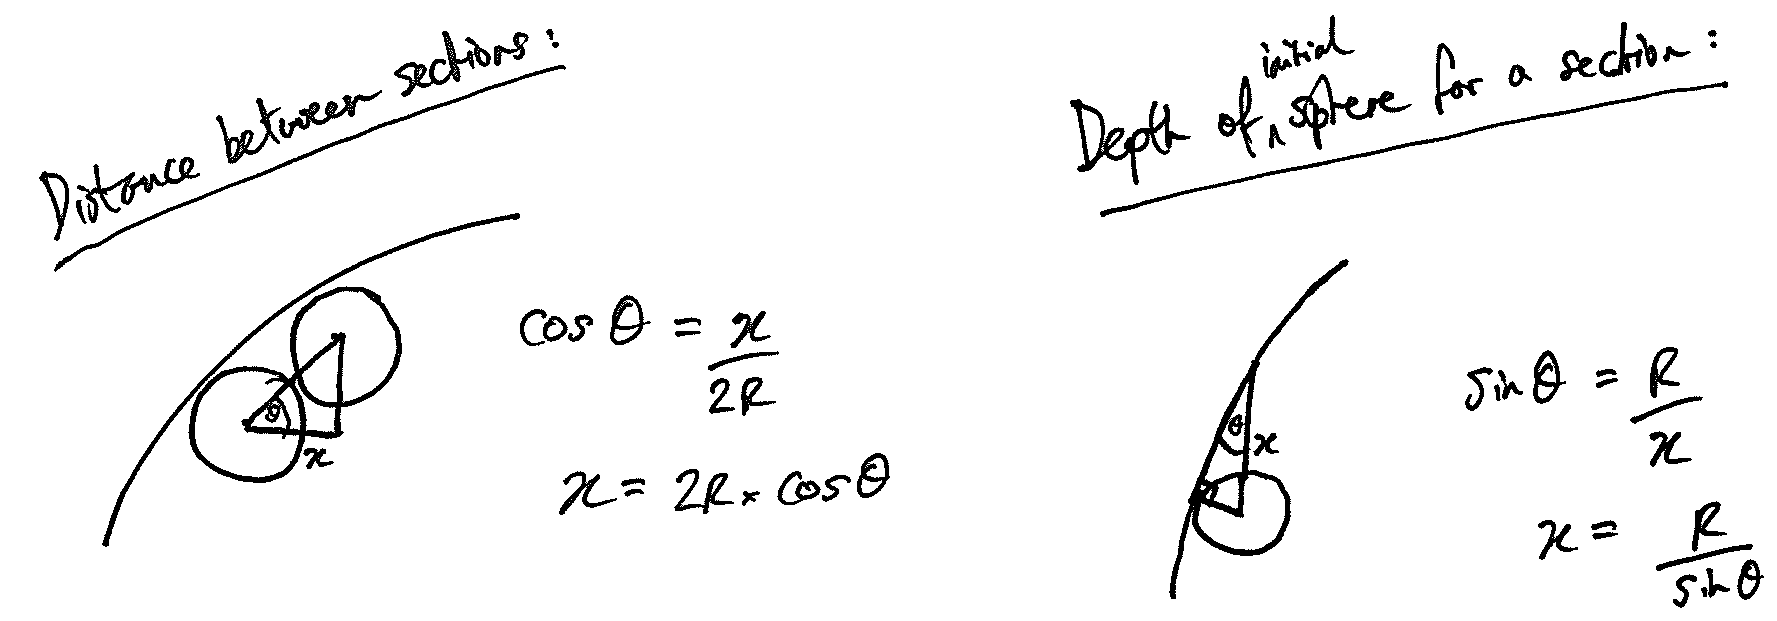 Distance between sections:
cos θ = x / 2R
x = 2R × cos θ
θ
x
Depth of initial sphere for a section:
sin θ = R / x
x = R / sin θ
θ
x